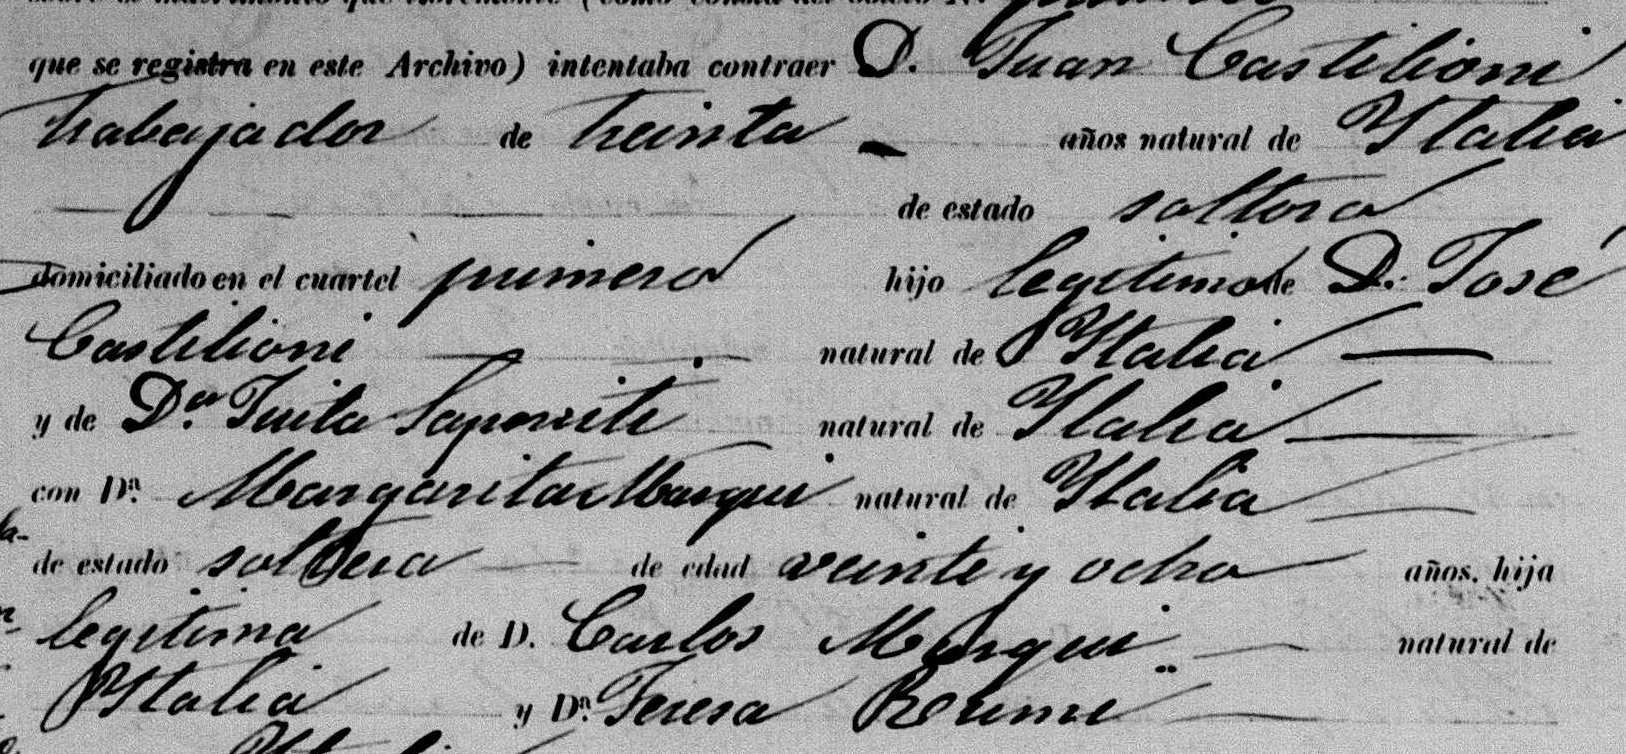 que se registra en este Archivo) intentaba contraer D. Juan Castilioni
trabajador de treinta años natural de Ytalia
de estado soltero
domiciliado en el cuartel primero hijo legitimo de D. José
Castilioni natural de Ytalia
y de Dª Juita Saporiti natural de Ytalia
con Dª Margarita Marqui natural de Ytalia
de estado soltera de edad veinte y ocho años, hija
legitima de D. Carlos Marqui natural de
Ytalia y Dª Teresa